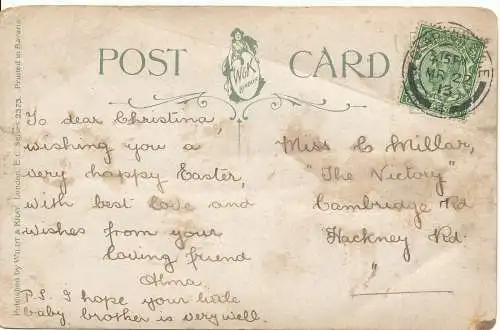 POST CARD
W&K
LONDON
3.15PM
MR 22
13
To dear Christina,
wishing you a
very happy Easter,
with best love and
wishes from your
loving friend
Alma.
P.S. I hope your little
baby brother is very well.
Miss C Millar,
"The Victory"
Cambridge Rd
Hackney Rd.
"
Published by Wildt & Kray, London, E.C. Series 2323. Printed in Bavaria